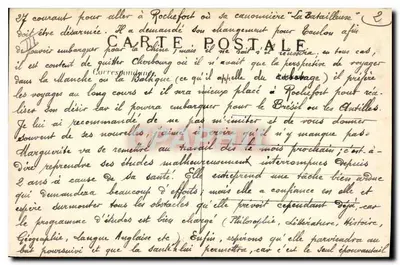 27 courant pour aller à Rochefort où sa canonnière "La Batailleuse"
doit être désarmée. Il a demandé son changement pour Toulon afin
de pouvoir embarquer pour la Chine, mais
CARTE POSTALE
est content de quitter Cherbourg où il n'avait que la perspective de voyager
(Correspondance)
dans la Manche ou la Baltique (ce qu'il appelle du                ) il préfère
les voyages au long cours et il sera mieux placé à Rochefort pour réa-
liser son désir car il pourra embarquer pour le Brésil ou les Antilles.
Je lui ai recommandé de ne pas m'imiter et de vous donner
souvent de ses nouvelles,                      qu'il n'y manque pas.
Marguerite va se remettre au travail dès le mois prochain, c'est-à-
dire reprendre ses études malheureusement interrompues depuis
2 ans à cause de sa santé. Elle entreprend une tâche bien ardue
qui demandera beaucoup d'efforts; mais elle a confiance en elle et
espère surmonter tous les obstacles qu'elle prévoit cependant déjà, car
le programme d'études est bien chargé (Philosophie, Littérature, Histoire,
Géographie, Langue Anglaise etc) Enfin, espérons qu'elle parviendra au
but poursuivi et que la santé lui permettra, car c'est le seul épouvantail
2